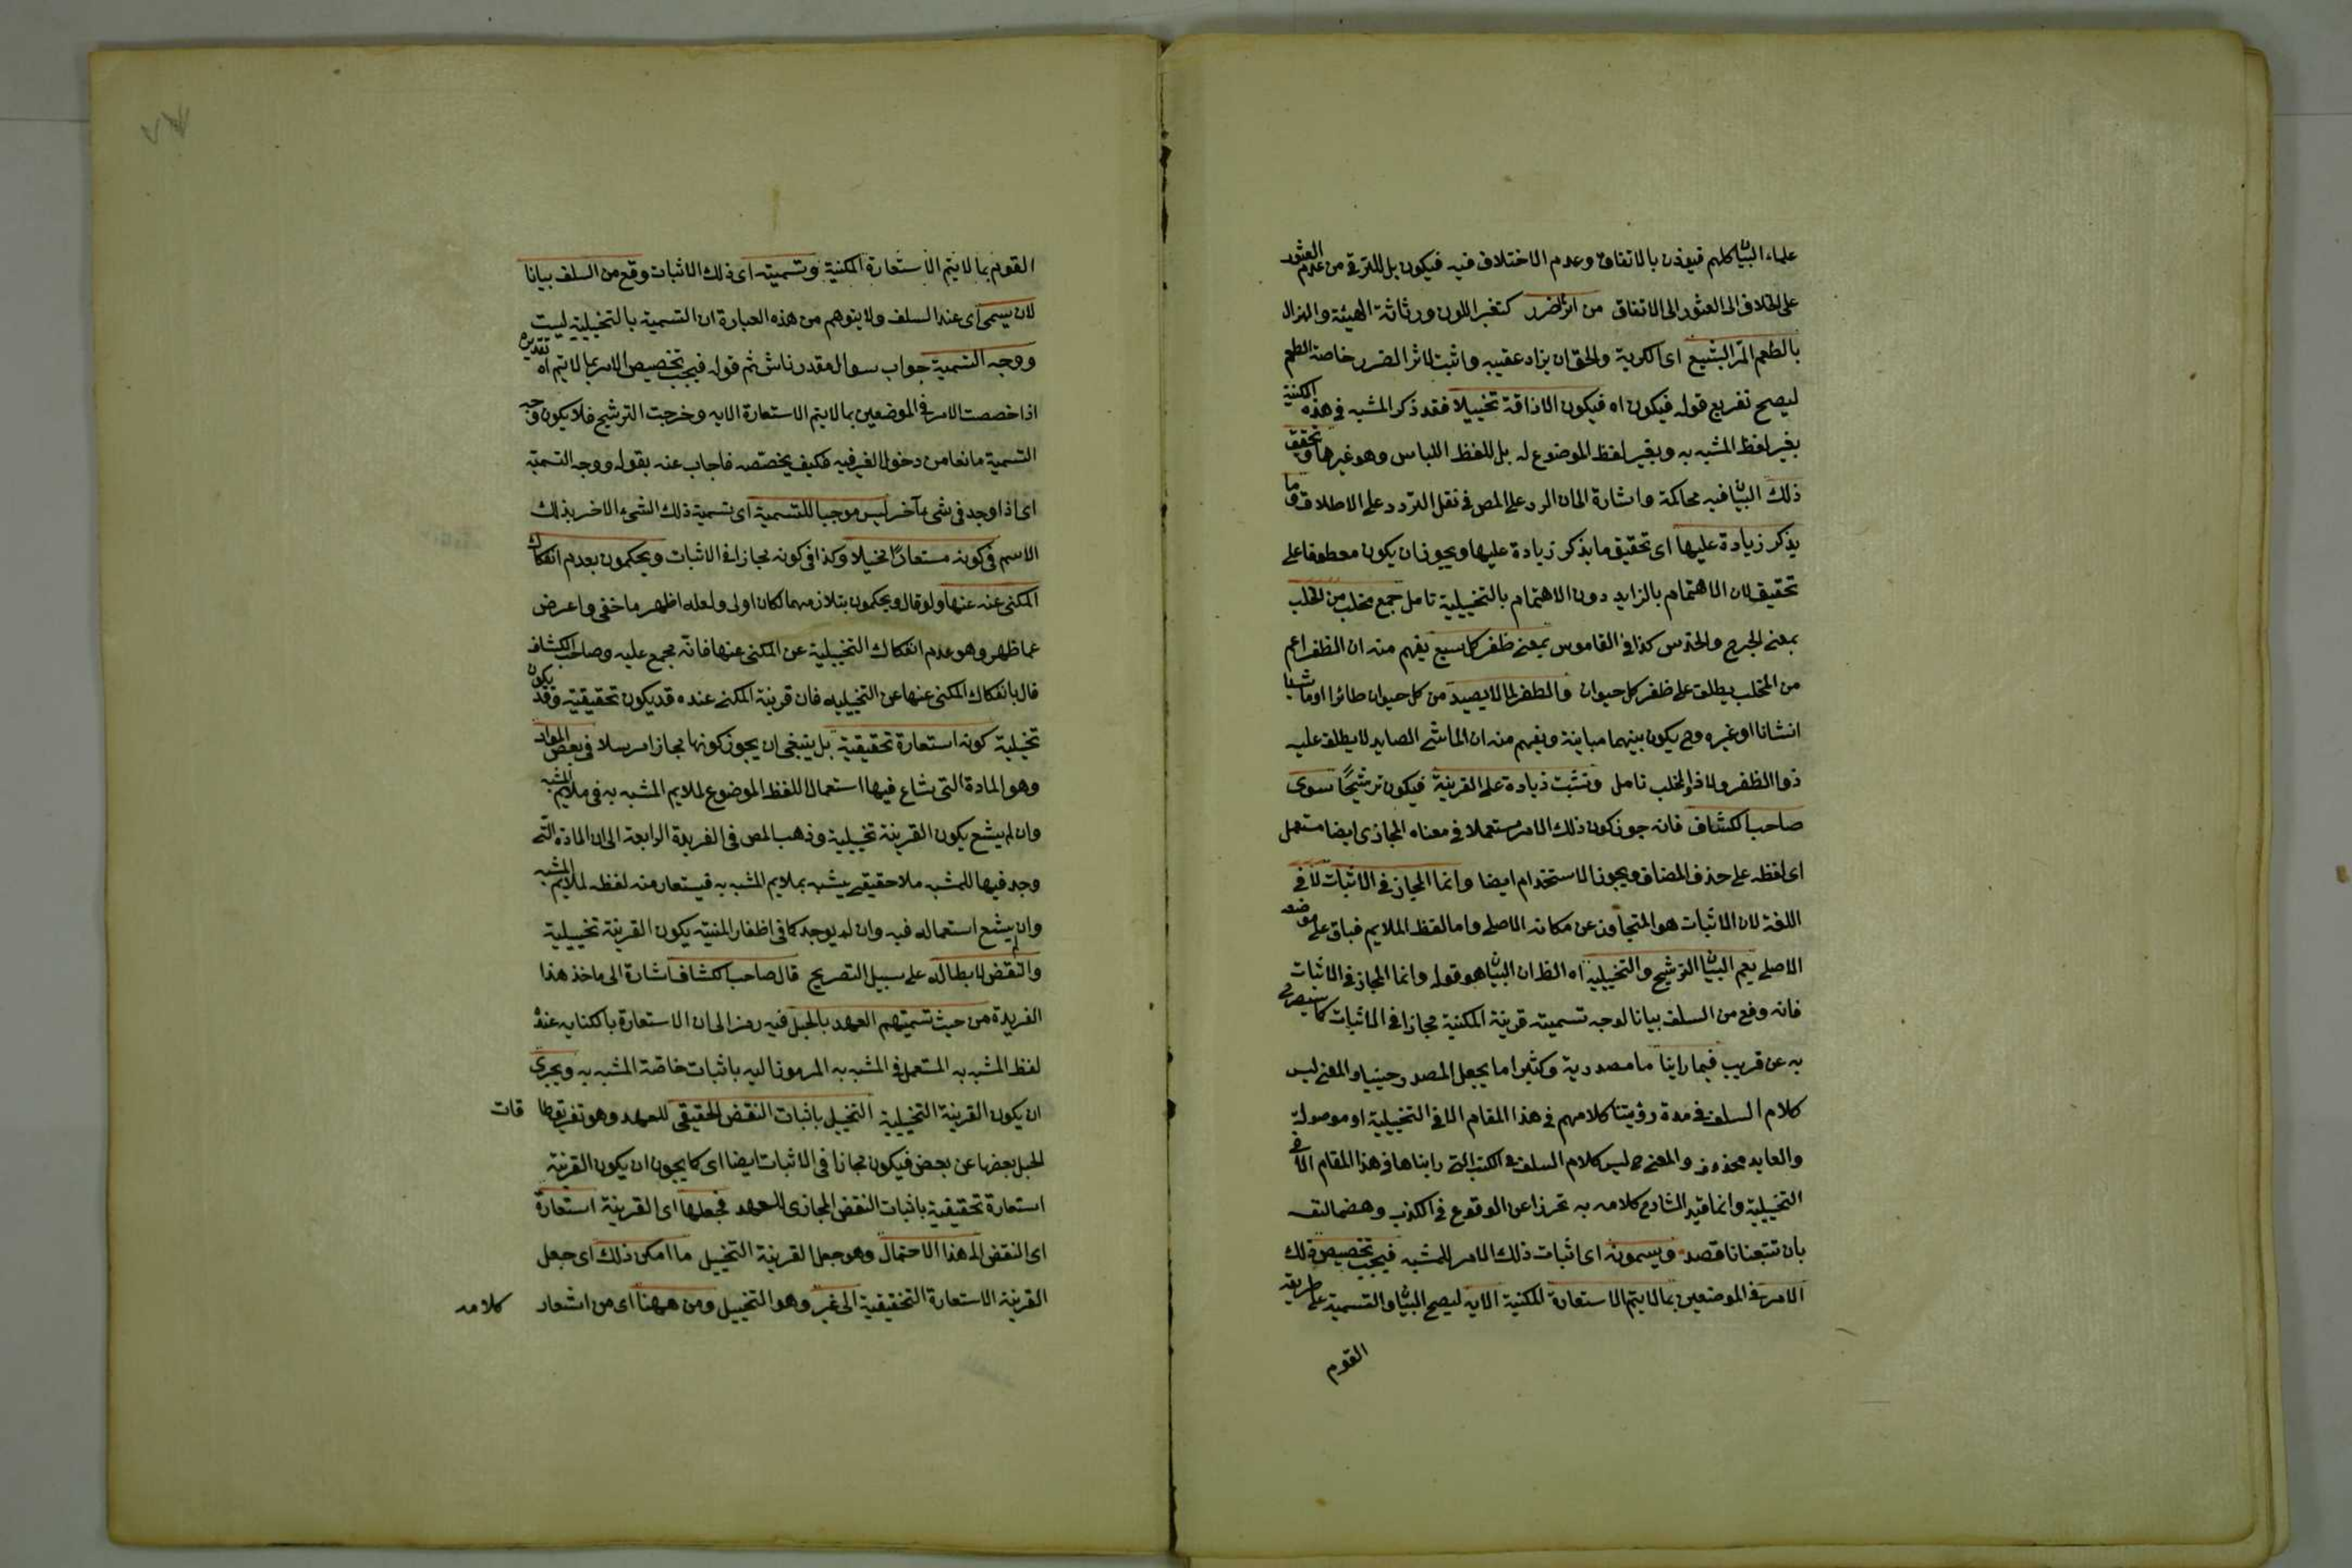 علماء البيان كلهم فيوذن بالاتفاق وعدم الاختلاف فيه فيكون بل للترقى من عدم العثور
على الخلاف الى العثور الى الاتفاق من اثر الضرر كتغير اللون ورثاثة الهيئة والهزال
بالطعم المر البشيع اى الكريه والحق ان يزاد عقيبه واثبت لاثر الضرر خاصة الطعم
ليصح تفريع قوله فيكون اه فيكون الاذاقة تخييلا فقد ذكر المشبه فى هذه المكنية
بغير لفظ المشبه به وبغير لفظ الموضوع له بل للفظ اللباس وهو غيرها وتحقق
ذلك البيان فيه محاكمة واشارة الى ان الرد على المص فى نقل التردد على الاطلاق وما
يذكر زيادة عليها اى تحقيق ما يذكر زيادة عليها ويجوز ان يكون معطوفا على
تحقيق لان الاهتمام بالزايد دون الاهتمام بالتخييلية تامل جمع مخلب من الخلب
بمعنى الجرح والخدس كذا فى القاموس بمعنى ظفر كل سبع يفهم منه ان الظفر اعم
من المخلب يطلق على ظفر كل حيوان والمظفر لما لا يصيد من كل حيوان طائرا او ماشيا
انسانا او غيره وح يكون بينهما مباينة ويفهم منه ان الماشى الصايد لا يطلق عليه
ذو الظفر ولا ذو المخلب تامل وتثبت زيادة على القرينة فيكون ترشيحا سوى
صاحب الكشاف فانه جوز كون ذلك الامر مستعملا فى معناه المجازى ايضا مستعمل
اى لفظه على حذف المضاف ويجوز الاستخدام ايضا وانما المجاز فى الاثبات لا فى
اللغة لان الاثبات هو المتجاوز عن مكانه الاصلى واما لفظ الملايم فباق على موضعه
الاصلى يعم البيان الترشيح والتخييلية اه الظ ان البيان هو قوله وانما المجاز فى الاثبات
فانه وقع من السلف بيانا لوجه تسميته قرينة المكنية مجازا فى الاثبات كما سيصرح
به عن قريب فيما راينا ما مصدرية وكثيرا ما يجعل المصدر حينيا والمعنى ليس
كلام السلف فى مدة رؤيتنا كلامهم فى هذا المقام الا فى التخييلية او موصولة
والعايد محذوف والمعنى ح ليس كلام السلف فى الكتب التى رايناها فى هذا المقام الا فى
التخييلية وانما قيد الشارح كلامه به تحرزا عن الوقوع فى الكذب وهضما لنفسه
بان تتبعنا ناقصة ويسمونه اى اثبات ذلك الامر للمشبه فيجب تخصيص ذلك
الامر فى الموضعين بما لا يتم الاستعارة المكنية الا به ليصح البيان والتسمية على طريقة
القوم
القوم بما لا يتم الاستعارة المكنية وتسميته اى ذلك الاثبات وقع من السلف بيانا
لان يسمى اى عند السلف ولا يتوهم من هذه العبارة ان التسمية بالتخييلية ليست
ووجه التسمية جواب سوال مقدر ناش ثم قوله فيجب تخصيص الامر بما لا يتم اه تقديره
اذا خصصت الامر فى الموضعين بما لا يتم الاستعارة الا به وخرجت الترشيح فلا يكون وجه
التسمية مانعا من دخول الغير فيه فكيف يخصصه فاجاب عنه بقوله ووجه التسمية
اى اذا وجد فى شى آخر ليس موجبا للتسمية اى تسمية ذلك الشىء الاخر بذلك
الاسم فى كونه مستعارا تخييلا وكذا فى كونه مجازا فى الاثبات ويحكمون بعدم انفكاك
المكنى عنه عنها ولو قال ويحكمون بتلازمهما لكان اولى ولعله اظهر ما خفى واعرض
عما ظهر وهو عدم انفكاك التخييلية عن المكنى عنها فانه مجمع عليه وصاحب الكشاف
قال بانفكاك المكنى عنها عن التخييليه فان قرينة المكنى عنده قد يكون تحقيقية وقد يكون
تخيلية كونه استعارة تحقيقية بل ينبغى ان يجوز كونها مجازا مرسلا فى بعض المواد
وهو المادة التى شاع فيها استعمال اللفظ الموضوع لملايم المشبه به فى ملايم المشبه
وان لم يشع يكون القرينة تخييلية وذهب المص فى الفريدة الرابعة الى ان المادة التى
وجد فيها للمشبه ملا حقيقى يشبه بملايم المشبه به فيستعار منه لفظه لملايم المشبه
وان لم يشع استعماله فيه وان لم يوجد كما فى اظفار المنية يكون القرينة تخييلية
والنقض لابطاله على سبيل التصريح قال صاحب الكشاف اشارة الى ماخذ هذا
الفريدة من حيث تسميتهم العهد بالحبل فيه رمز الى ان الاستعارة بالكنايه عنده
لفظ المشبه به المستعمل فى المشبه به المرموز اليه باثبات خاصة المشبه به ويجرى
ان يكون القرينة التخييلية التخييل باثبات النقض الحقيقى للعهد وهو تفريق طا قات
الحبل بعضها عن بعض فيكون مجازا فى الاثبات ايضا اى كما يجوز ان يكون القرينة
استعارة تحقيقية باثبات النقض المجازى للعهد فجعلها اى القرينة استعارة
اى النقض الى هذا الاحتمال وهو جعل القرينة التخييل ما امكن ذلك اى جعل
القرينة الاستعارة التحقيقية الى غير وهو التخييل ومن ههنا اى من اشعار كلامه